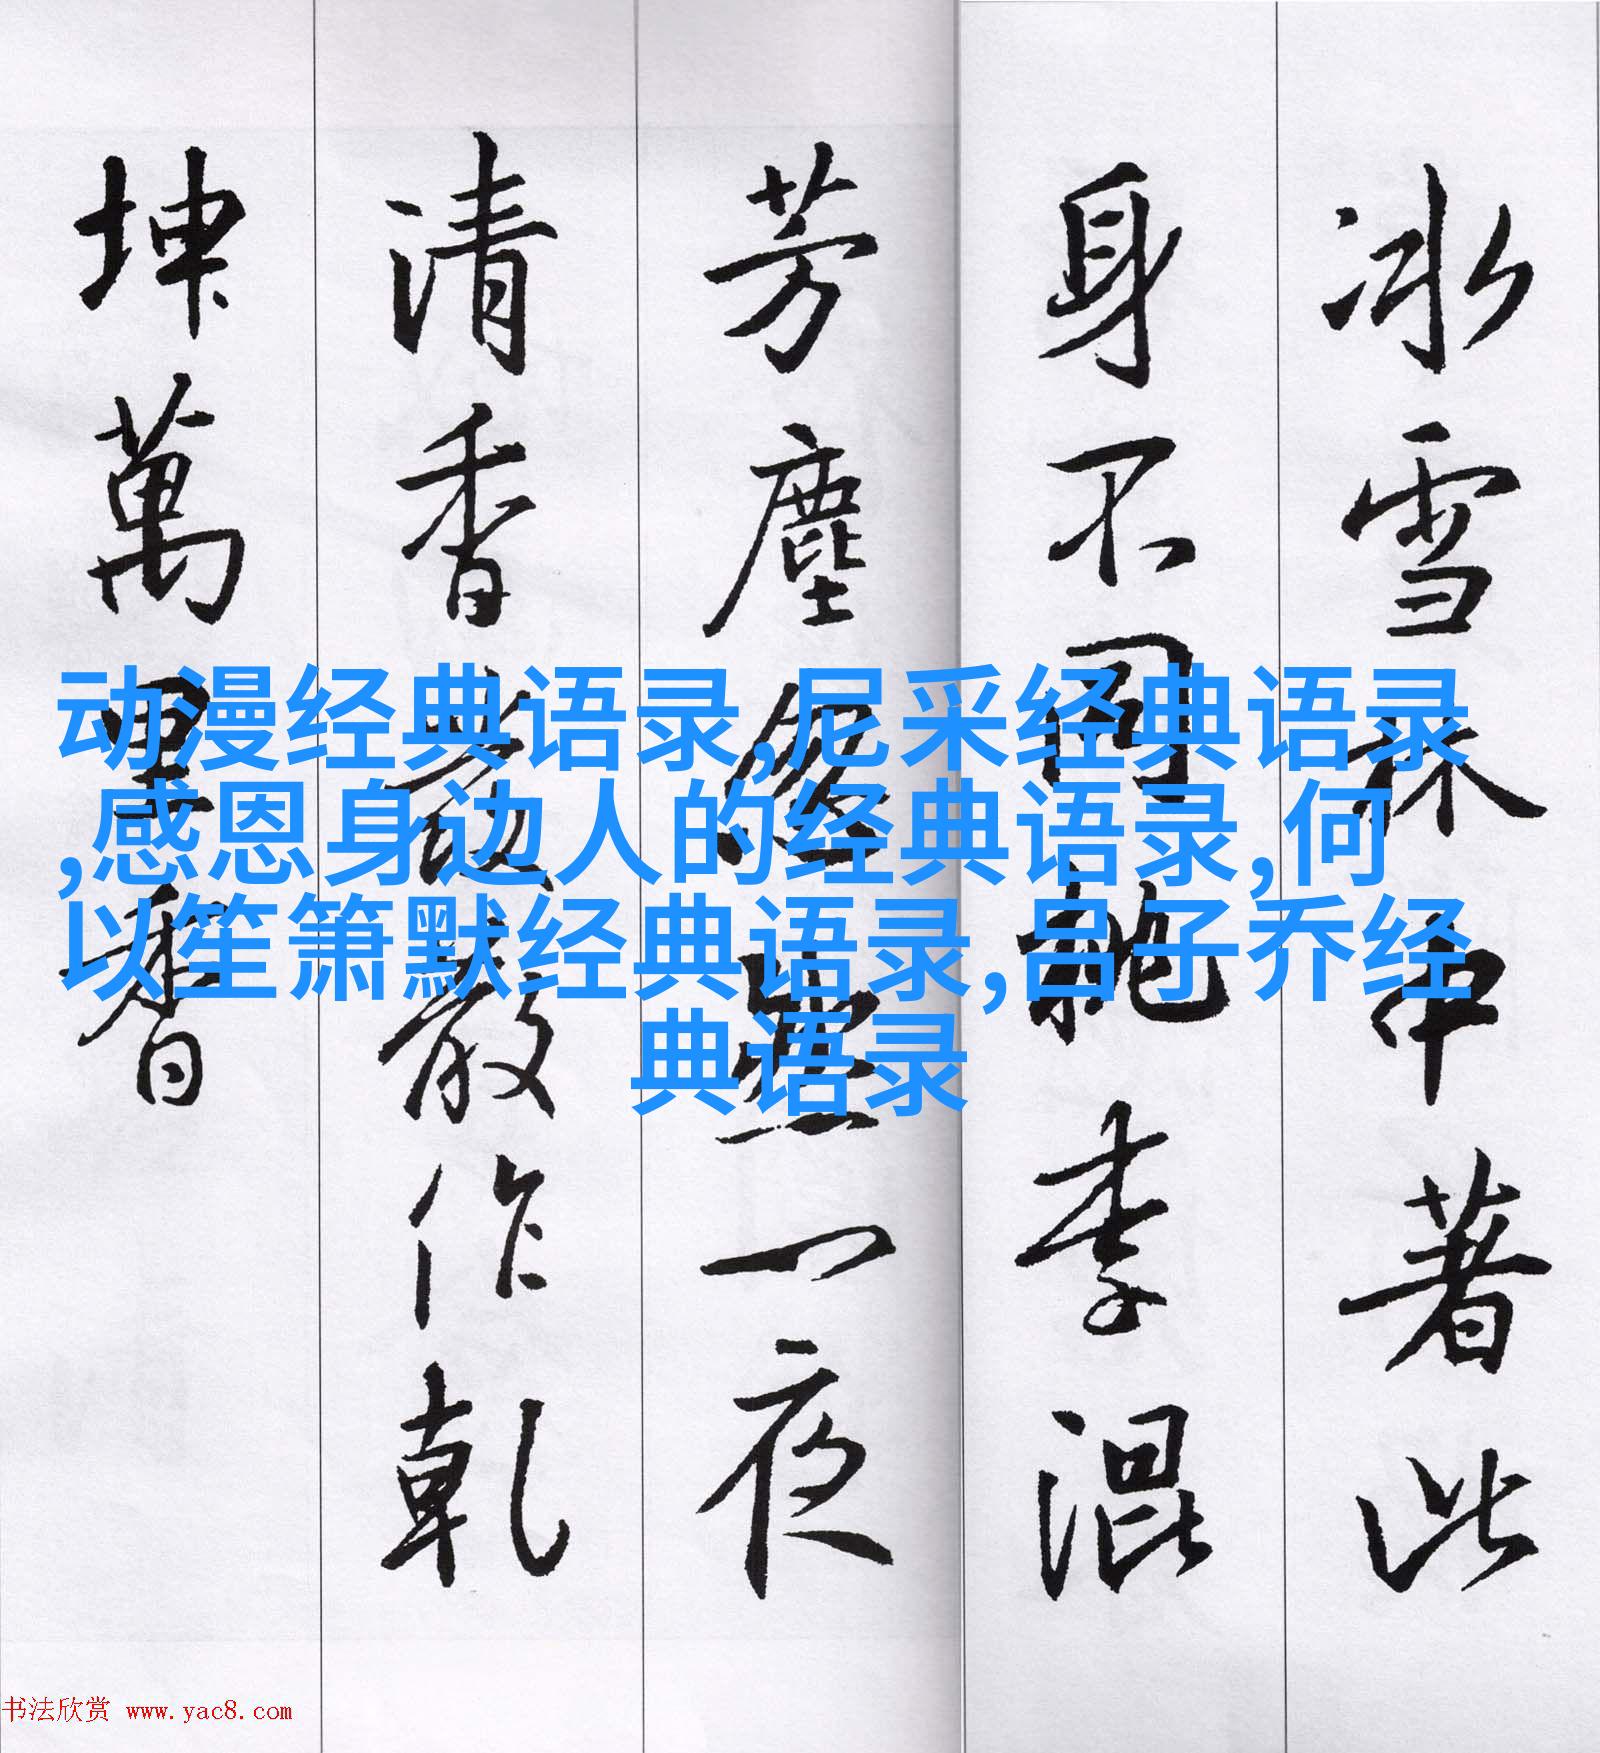 冰雪林中著此
身不同桃李混
芳塵忽然一夜
清香發散作乾
坤萬里香
动漫经典语录,尼采经典语录
,感恩身边人的经典语录,何
以笙箫默经典语录,吕子乔经
典语录
书法欣赏 www.yac8.com